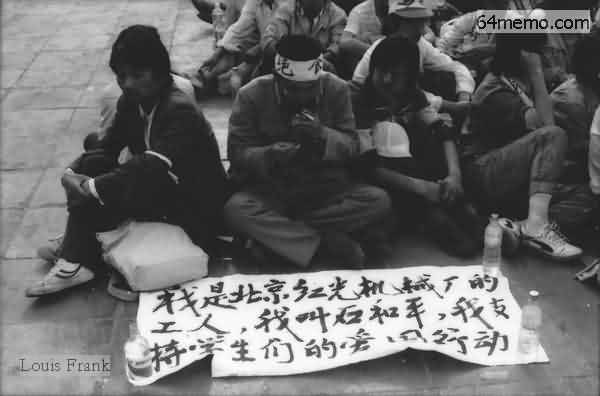 64memo.com
我是北京红光机械厂的
工人，我叫石和平，我支
持学生们的爱国行动
Louis Frank